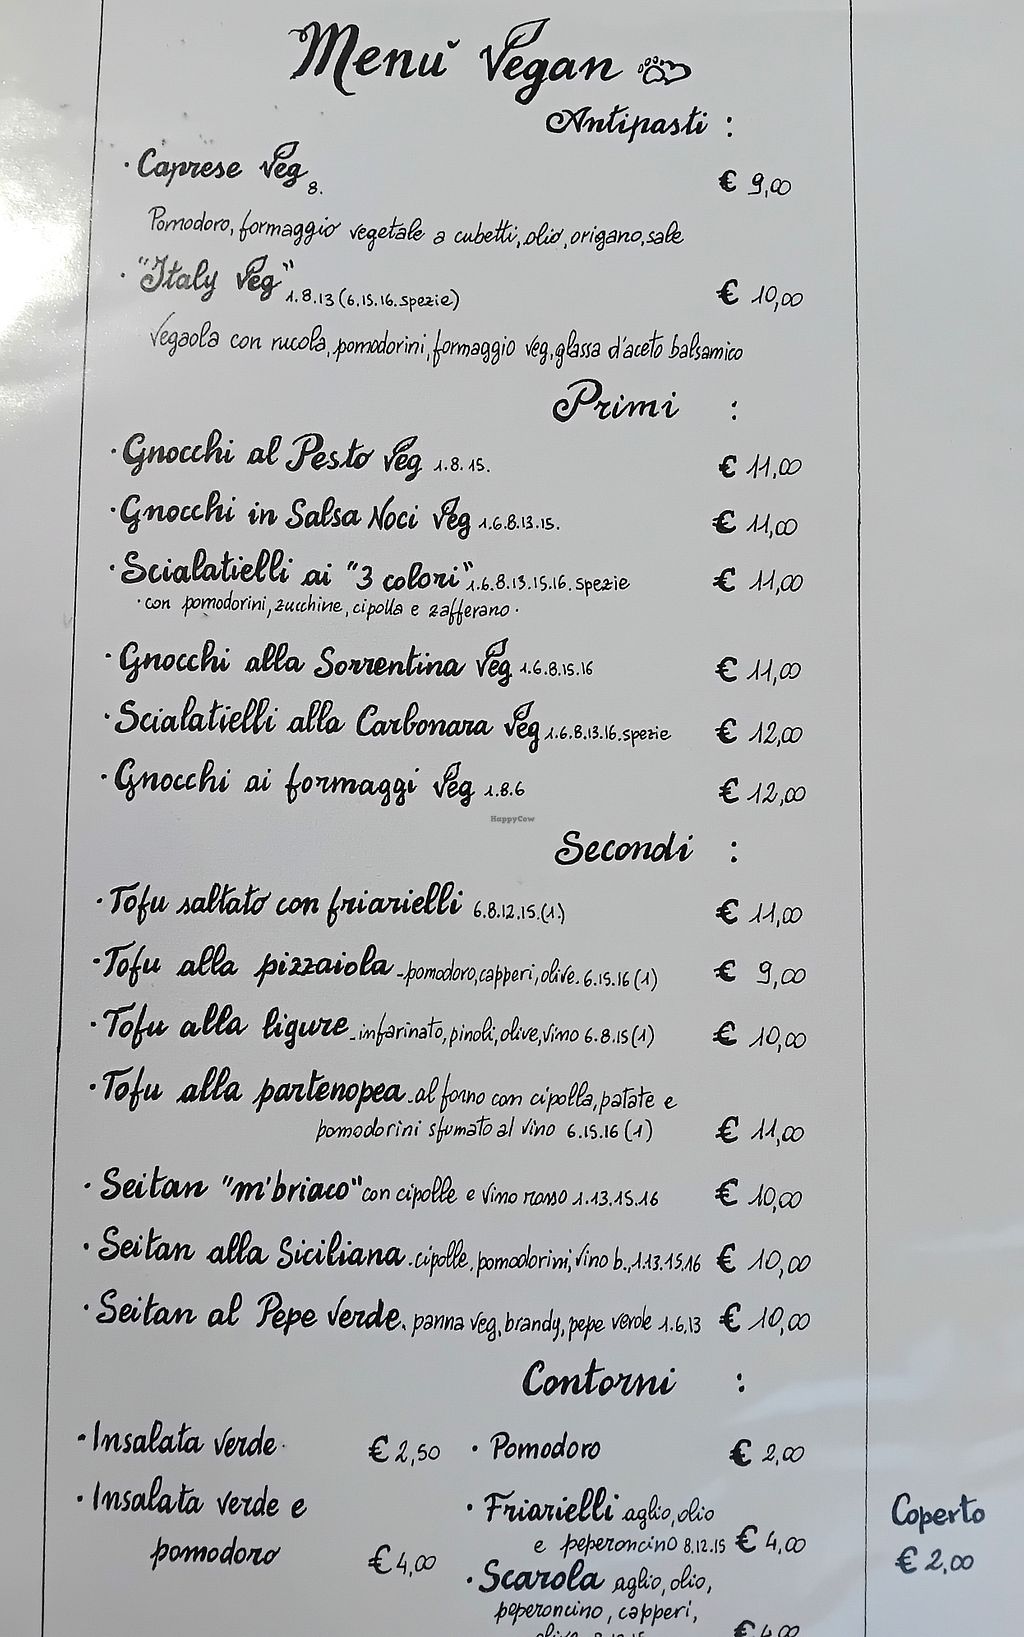 Menù Vegan
Antipasti :
· Caprese Veg 8. € 9,00
Pomodoro, formaggio vegetale a cubetti, olio, origano, sale
· "Italy Veg" 1.8.13 (6.15.16.spezie) € 10,00
Vegaola con rucola, pomodorini, formaggio veg, glassa d'aceto balsamico
Primi :
· Gnocchi al Pesto Veg 1.8.15. € 11,00
· Gnocchi in Salsa Noci Veg 1.6.8.13.15. € 11,00
· Scialatielli ai "3 colori" 1.6.8.13.15.16.spezie € 11,00
· con pomodorini, zucchine, cipolla e zafferano ·
· Gnocchi alla Sorrentina Veg 1.6.8.15.16 € 11,00
· Scialatielli alla Carbonara Veg 1.6.8.13.16.spezie € 12,00
· Gnocchi ai formaggi Veg 1.8.6 € 12,00
HappyCow
Secondi :
· Tofu saltato con friarielli 6.8.12.15.(1.) € 11,00
· Tofu alla pizzaiola - pomodoro, capperi, olive. 6.15.16 (1) € 9,00
· Tofu alla ligure - infarinato, pinoli, olive, vino 6.8.15 (1) € 10,00
· Tofu alla partenopea - al forno con cipolla, patate e
pomodorini sfumato al vino 6.15.16 (1) € 11,00
· Seitan "m'briaco" con cipolle e vino rosso 1.13.15.16 € 10,00
· Seitan alla Siciliana . cipolle, pomodorini, vino b., 1.13.15.16 € 10,00
· Seitan al Pepe verde . panna veg, brandy, pepe verde 1.6.13 € 10,00
Contorni :
· Insalata verde · € 2,50
· Insalata verde e
pomodoro € 4,00
· Pomodoro € 2,00
· Friarielli aglio, olio
e peperoncino 8.12.15 € 4,00
· Scarola aglio, olio,
peperoncino, capperi,
olive 8.12.15 € 4,00
Coperto
€ 2,00